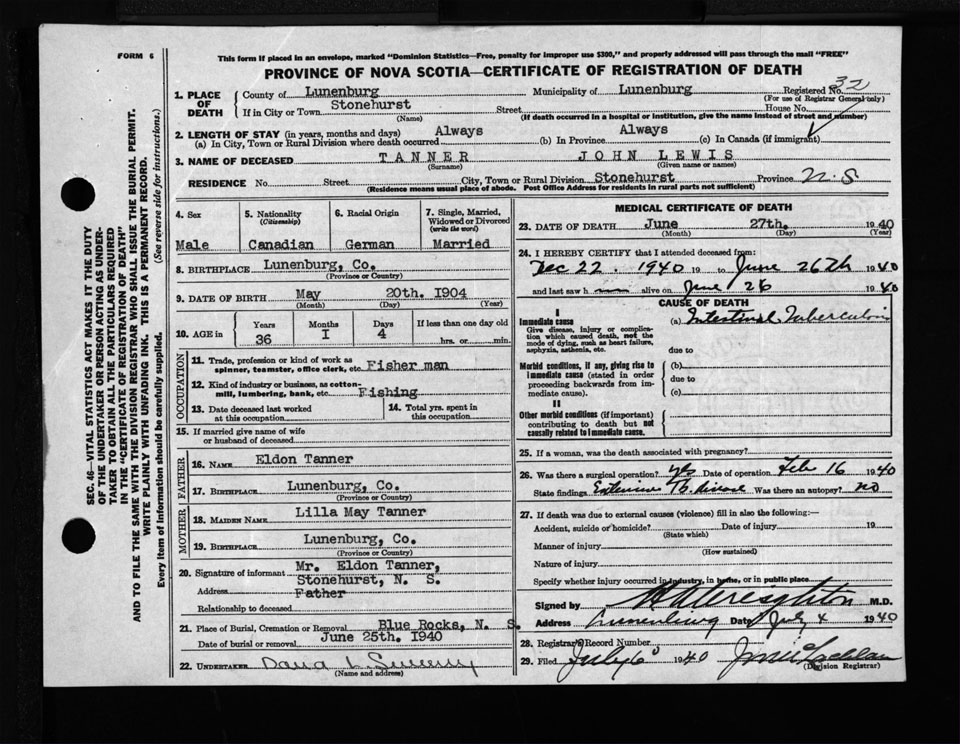 FORM 6
This form if placed in an envelope, marked "Dominion Statistics—Free, penalty for improper use $300," and properly addressed will pass through the mail "FREE"
PROVINCE OF NOVA SCOTIA—CERTIFICATE OF REGISTRATION OF DEATH
SEC. 46—VITAL STATISTICS ACT MAKES IT THE DUTY
OF THE UNDERTAKER OR PERSON ACTING AS UNDER-
TAKER TO OBTAIN ALL THE PARTICULARS REQUIRED
IN THE "CERTIFICATE OF REGISTRATION OF DEATH"
AND TO FILE THE SAME WITH THE DIVISION REGISTRAR WHO SHALL ISSUE THE BURIAL PERMIT.
WRITE PLAINLY WITH UNFADING INK. THIS IS A PERMANENT RECORD.
Every item of information should be carefully supplied. (See reverse side for instructions.)
1. PLACE OF DEATH
County of Lunenburg Municipality of Lunenburg Registered No. 32
(For use of Registrar General only)
If in City or Town Stonehurst Street House No.
(Name) (If death occurred in a hospital or institution, give the name instead of street and number)
2. LENGTH OF STAY (in years, months and days)
(a) In City, Town or Rural Division where death occurred Always (b) In Province Always (c) In Canada (if immigrant)
3. NAME OF DECEASED TANNER JOHN LEWIS
(Surname) (Given name or names)
RESIDENCE No. Street City, Town or Rural Division Stonehurst Province N.S
(Residence means usual place of abode. Post Office Address for residents in rural parts not sufficient)
4. Sex
Male
5. Nationality
(Citizenship)
Canadian
6. Racial Origin
German
7. Single, Married,
Widowed or Divorced
(write the word)
Married
8. BIRTHPLACE Lunenburg, Co.
(Province or Country)
9. DATE OF BIRTH May 20th. I904
(Month) (Day) (Year)
10. AGE in
Years Months Days If less than one day old
36 I 4 hrs. or min.
OCCUPATION
11. Trade, profession or kind of work as
spinner, teamster, office clerk, etc. Fisher man
12. Kind of industry or business, as cotton-
mill, lumbering, bank, etc. Fishing
13. Date deceased last worked
at this occupation
14. Total yrs. spent in
this occupation
15. If married give name of wife
or husband of deceased
FATHER
16. NAME Eldon Tanner
17. BIRTHPLACE Lunenburg, Co.
(Province or Country)
MOTHER
18. MAIDEN NAME Lilla May Tanner
19. BIRTHPLACE Lunenburg, Co.
(Province or Country)
20. Signature of informant Mr. Eldon Tanner,
Address Stonehurst, N. S.
Relationship to deceased Father
21. Place of Burial, Cremation or Removal Blue Rocks, N. S.
Date of burial or removal June 25th. I940
22. UNDERTAKER
(Name and address)
MEDICAL CERTIFICATE OF DEATH
23. DATE OF DEATH June 27th. 1940
(Month) (Day) (Year)
24. I HEREBY CERTIFY that I attended deceased from:
Dec 22. 1940 19 to June 26th 1940
and last saw h im alive on June 26 1940
CAUSE OF DEATH
I
Immediate cause
Give disease, injury or complica-
tion which caused death, not the
mode of dying, such as heart failure,
asphyxia, asthenia, etc.
(a) Intestinal Tuberculosis
due to
Morbid conditions, if any, giving rise to
immediate cause (stated in order
proceeding backwards from im-
mediate cause).
(b)
due to
(c)
II
Other morbid conditions (if important)
contributing to death but not
causally related to immediate cause.
25. If a woman, was the death associated with pregnancy?
26. Was there a surgical operation? yes Date of operation Feb 16 1940
State findings Extensive Tb. disease Was there an autopsy? no
27. If death was due to external causes (violence) fill in also the following:—
Accident, suicide or homicide? Date of injury 19
(State which)
Manner of injury
(How sustained)
Nature of injury
Specify whether injury occurred in industry, in home, or in public place
Signed by M.D.
Address Lunenburg Date July 4 1940
28. Registrar's Record Number
29. Filed July 6 1940
(Division Registrar)